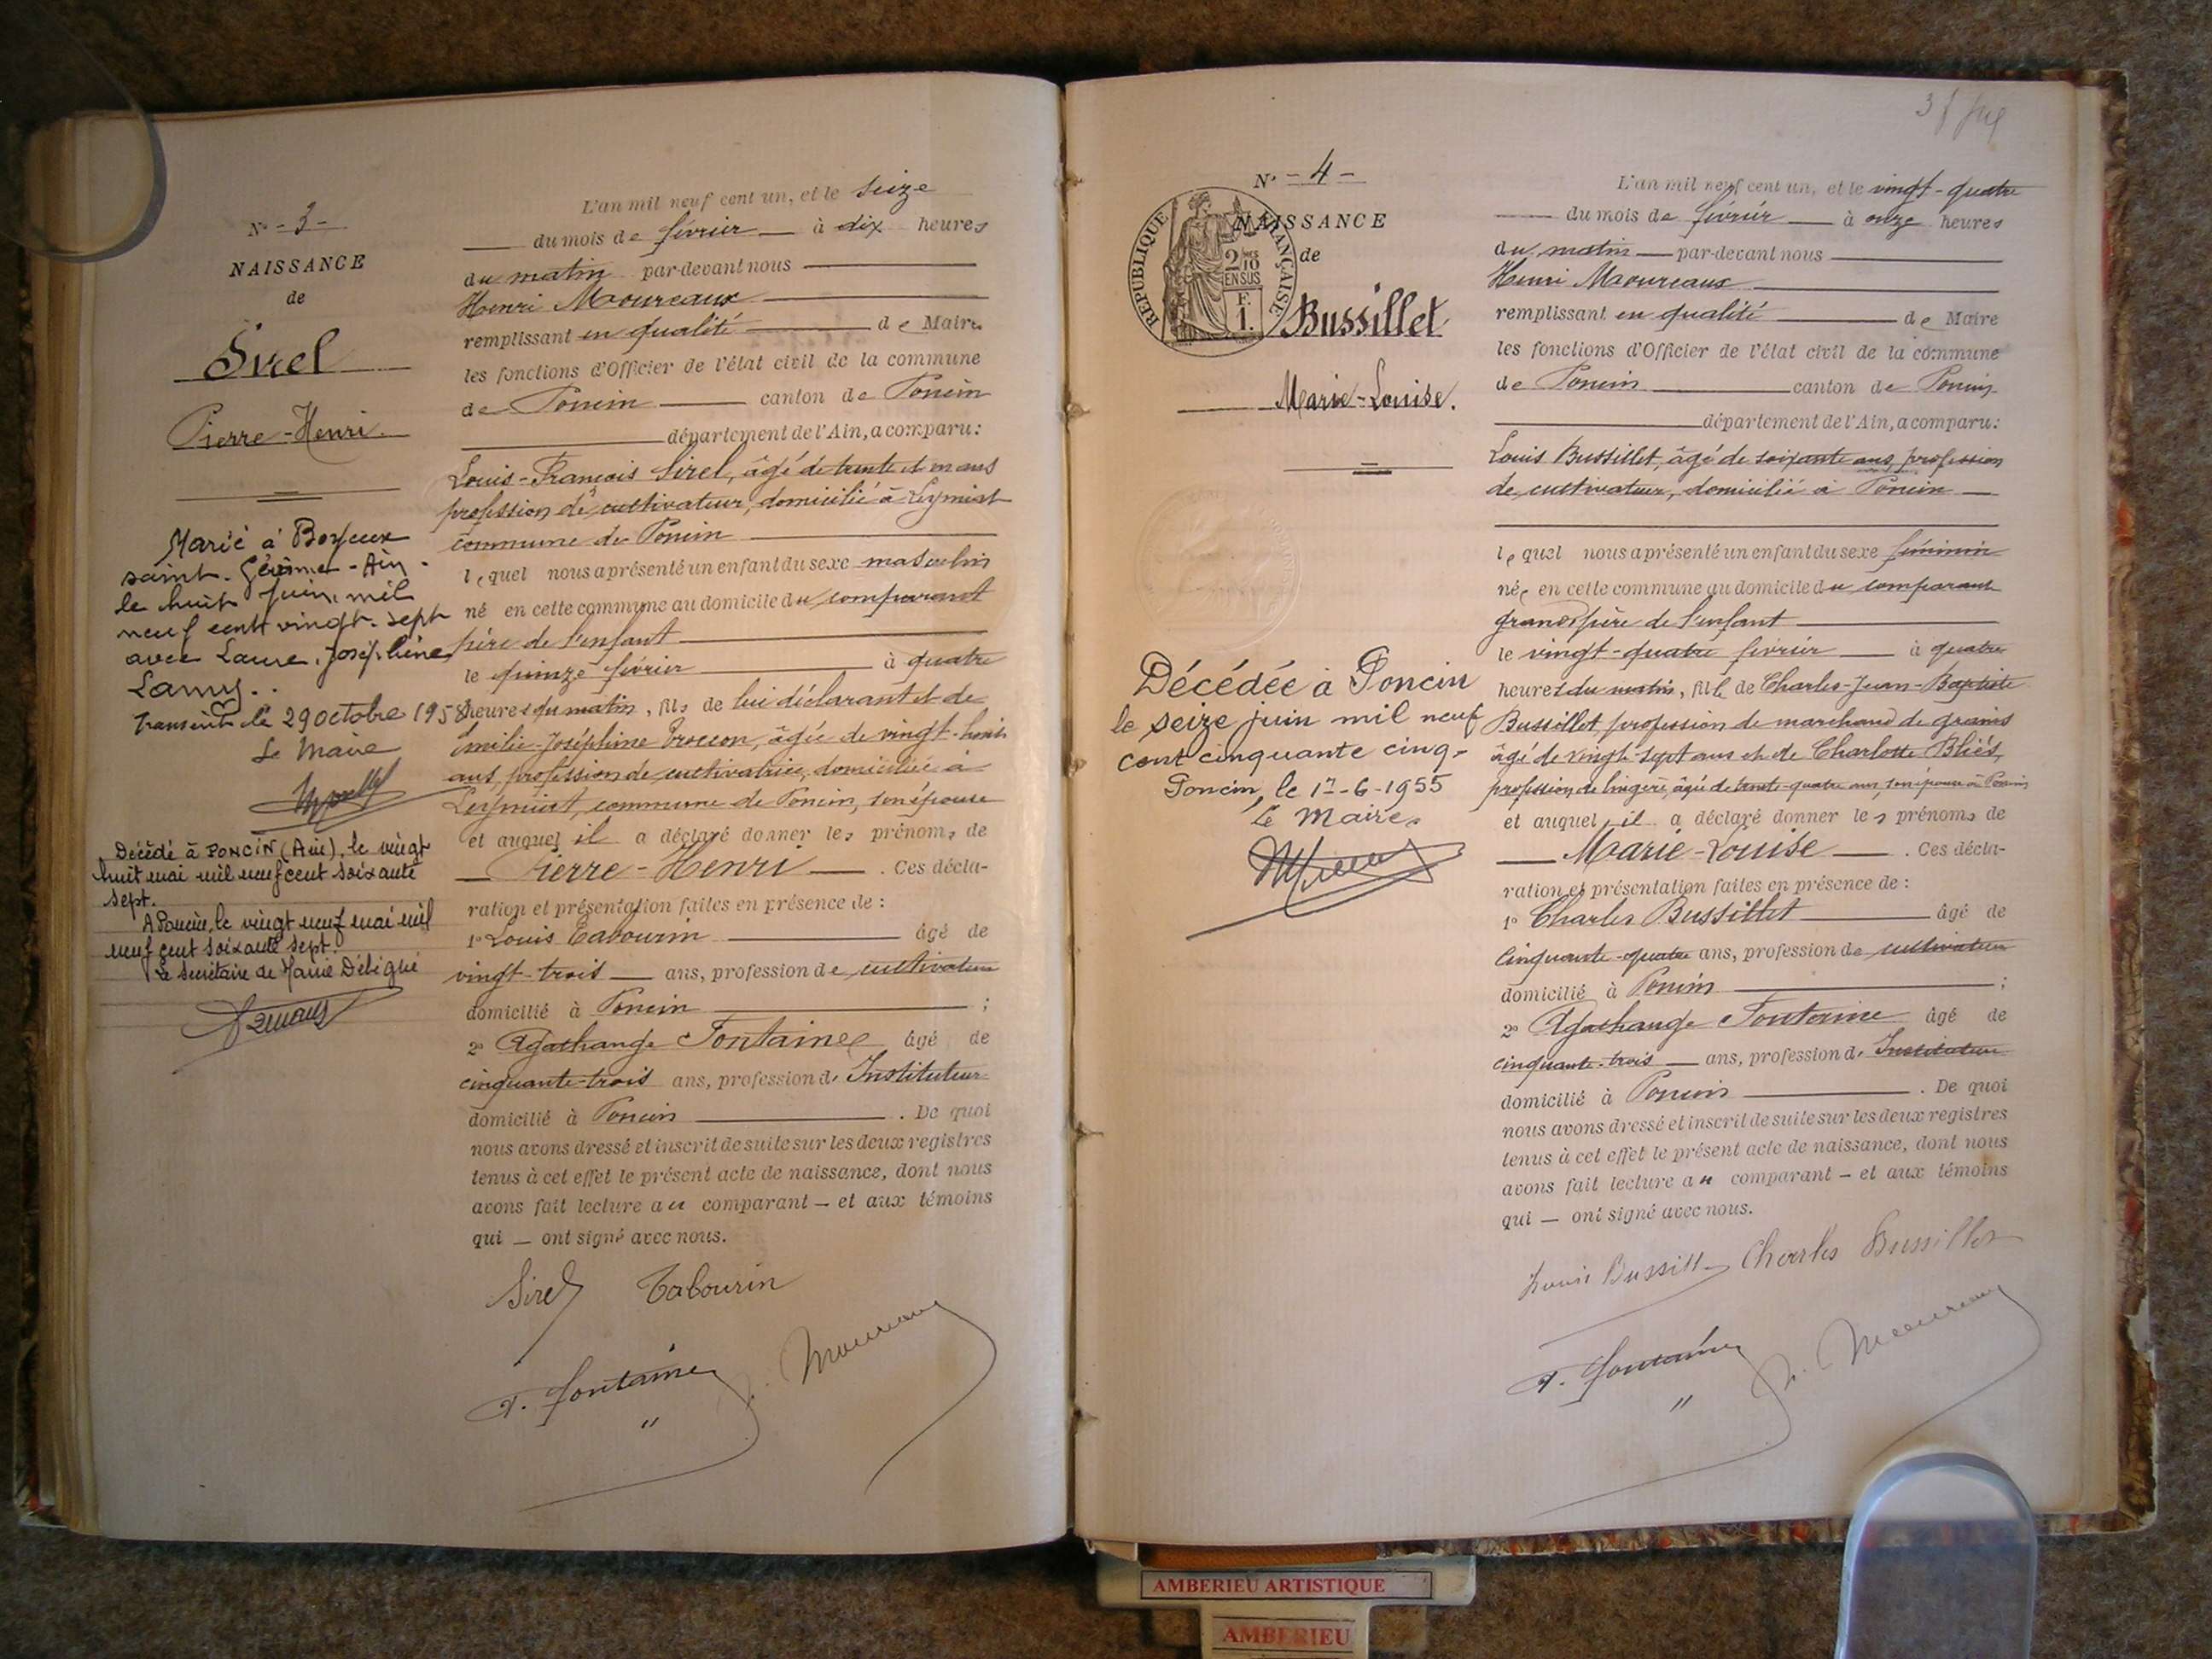 N° - 3 -
NAISSANCE
de
Sirel
Pierre-Henri.
Marié à Boyeux
saint-Jérôme - Ain -
le huit juin mil
neuf cent vingt-sept
avec Laure, Joséphine
Lamy.
Transcrit le 29 octobre 1958
Le Maire
Décédé à PONCIN (Ain), le vingt
huit mai mil neuf cent soixante
sept.
A Poncin, le vingt neuf mai mil
neuf cent soixante sept.
Le Secrétaire de Mairie Délégué
L'an mil neuf cent un, et le seize
du mois de février à dix heures
du matin par-devant nous
Henri Moureaux
remplissant en qualité de Maire
les fonctions d'Officier de l'état civil de la commune
de Poncin canton de Poncin
département de l'Ain, a comparu:
Louis-François Sirel, âgé de trente et un ans
profession de cultivateur, domicilié à Leymiat
commune de Poncin
lequel nous a présenté un enfant du sexe masculin
né en cette commune au domicile du comparant
père de l'enfant
le quinze février à quatre
heures du matin, fils de lui déclarant et de
Emilie-Joséphine Trocon, âgée de vingt-huit
ans, profession de cultivatrice, domiciliée à
Leymiat, commune de Poncin, son épouse
et auquel il a déclaré donner les prénoms de
Pierre-Henri. Ces décla-
ration et présentation faites en présence de :
1° Louis Tabourin âgé de
vingt-trois ans, profession de cultivateur
domicilié à Poncin ;
2° Agathange Fontaine âgé de
cinquante-trois ans, profession d'Instituteur
domicilié à Poncin. De quoi
nous avons dressé et inscrit de suite sur les deux registres
tenus à cet effet le présent acte de naissance, dont nous
avons fait lecture au comparant - et aux témoins
qui - ont signé avec nous.
Sirel Tabourin
A. Fontaine
H. Moureaux
N° - 4 -
NAISSANCE
de
REPUBLIQUE FRANÇAISE
2/10 EN SUS
F.
1.
Bussillet
Marie-Louise.
Décédée à Poncin
le seize juin mil neuf
cent cinquante cinq -
Poncin, le 17-6-1955
Le Maire
L'an mil neuf cent un, et le vingt-quatre
du mois de février à onze heures
du matin par-devant nous
Henri Moureaux
remplissant en qualité de Maire
les fonctions d'Officier de l'état civil de la commune
de Poncin canton de Poncin
département de l'Ain, a comparu:
Louis Bussillet, âgé de soixante ans, profession
de cultivateur, domicilié à Poncin
lequel nous a présenté un enfant du sexe féminin
née en cette commune au domicile du comparant
grand-père de l'enfant
le vingt-quatre février à quatre
heures du matin, fille de Charles-Jean-Baptiste
Bussillet, profession de marchand de grains
âgé de vingt-sept ans et de Charlotte Bliés,
profession de lingère, âgée de trente-quatre ans, son épouse à Poncin
et auquel il a déclaré donner les prénoms de
Marie-Louise. Ces décla-
ration et présentation faites en présence de :
1° Charles Bussillet âgé de
cinquante-quatre ans, profession de cultivateur
domicilié à Poncin ;
2° Agathange Fontaine âgé de
cinquante-trois ans, profession d'Instituteur
domicilié à Poncin. De quoi
nous avons dressé et inscrit de suite sur les deux registres
tenus à cet effet le présent acte de naissance, dont nous
avons fait lecture au comparant - et aux témoins
qui - ont signé avec nous.
Louis Bussill Charles Bussillet
A. Fontaine
H. Moureaux
AMBERIEU ARTISTIQUE
AMBERIEU